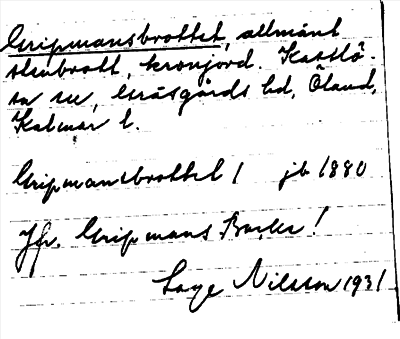 Gripmansbrottet, allmänt
stenbrott, kronjord. Kastlö-
sa sn, Gräsgårds hd, Öland,
Kalmar l.
Gripmansbrottet / jb 1880
Jfr. Gripmans Backe!
Lage Nilsson 1931